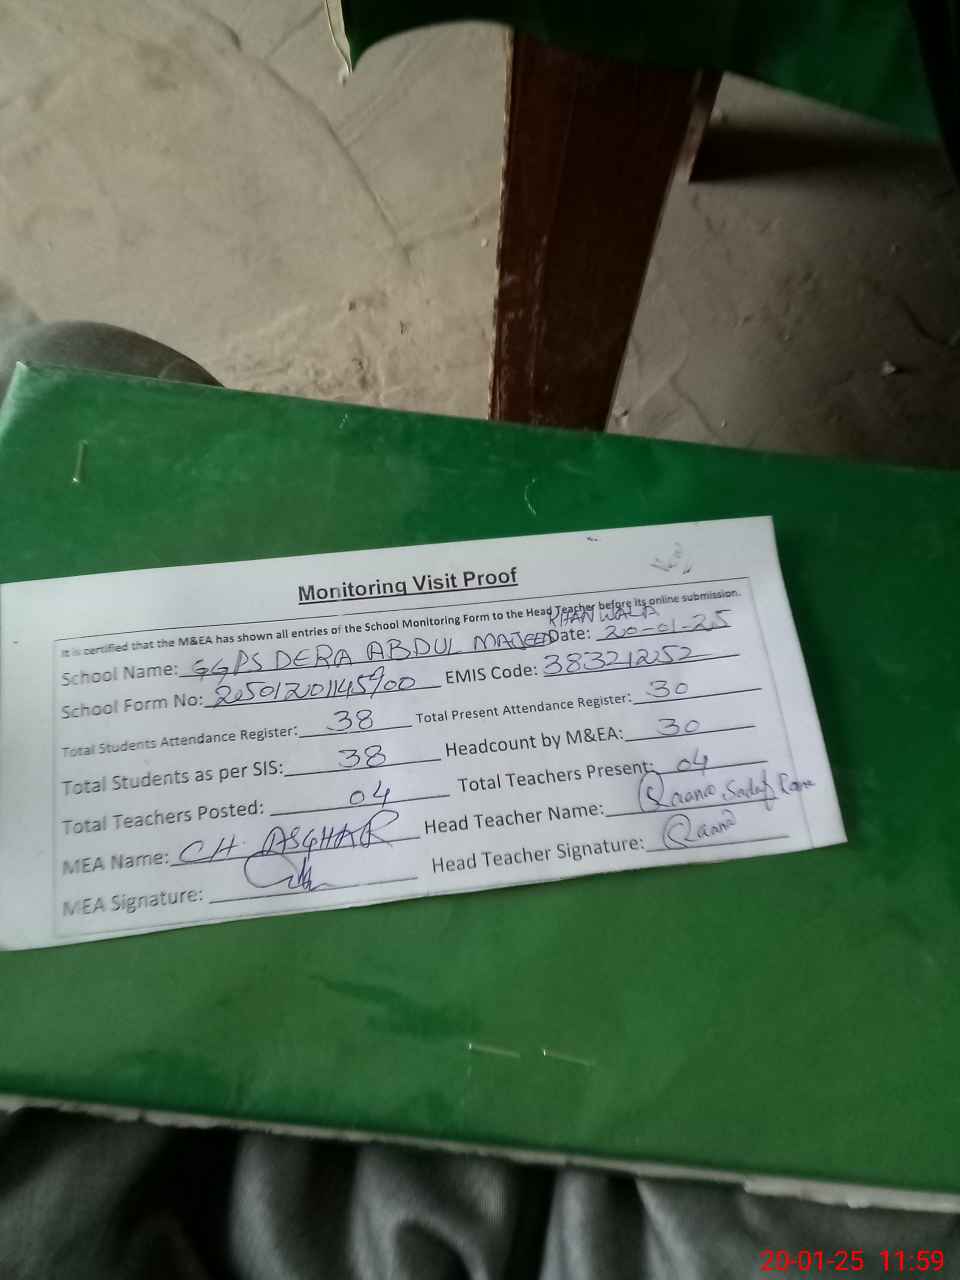 Monitoring Visit Proof
It is certified that the M&EA has shown all entries of the School Monitoring Form to the Head Teacher before its online submission.
School Name: GGPS DERA ABDUL MAJEED KHAN WALA Date: 20-01-25
School Form No: 20501201145900 EMIS Code: 38321252
Total Students Attendance Register: 38 Total Present Attendance Register: 30
Total Students as per SIS: 38 Headcount by M&EA: 30
Total Teachers Posted: 04 Total Teachers Present: 04
MEA Name: CH. ASGHAR Head Teacher Name: Sadaf
MEA Signature: Head Teacher Signature:
20-01-25 11:59